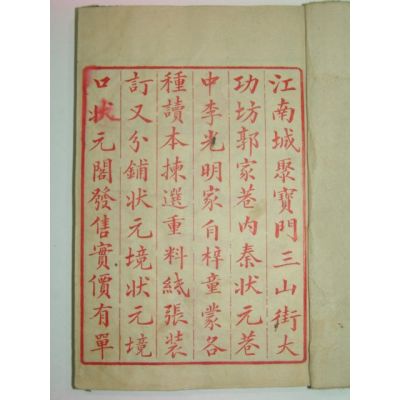 江南城聚寳門三山街大
功坊郭家巷内秦狀元巷
中李光明家自梓童蒙各
種讀本揀選重料紙張装
訂又分鋪狀元境狀元境
口狀元閣發售實價有單